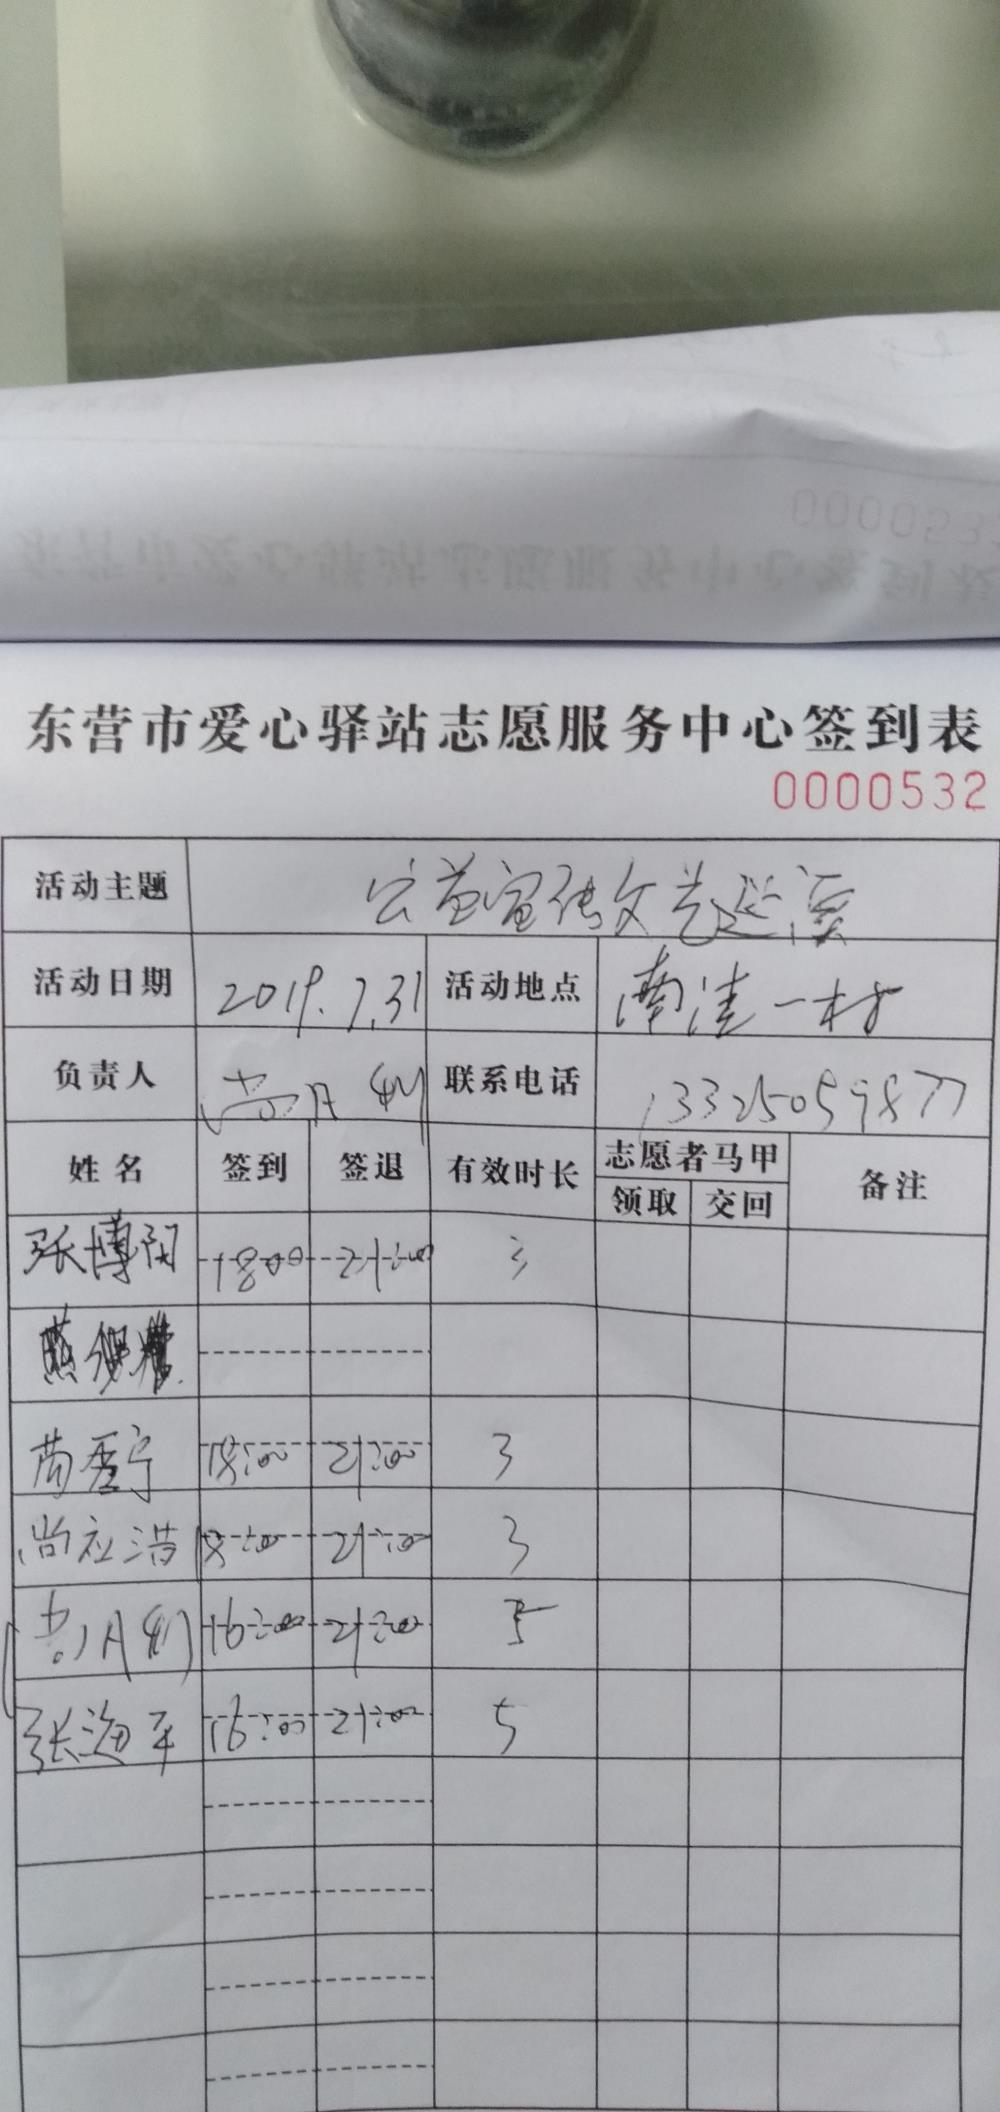 东营市爱心驿站志愿服务中心签到表
0000532
活动主题 公益宣传文艺巡演
活动日期 2019.7.31 活动地点 南洼一村
负责人 联系电话 13325059877
姓名 签到 签退 有效时长 志愿者马甲 备注
领取 交回
张博闻 18:00 21:00 3
18:00 21:00 3
尚应浩 18:00 21:00 3
16:00 21:00 5
张海平 16:00 21:00 5